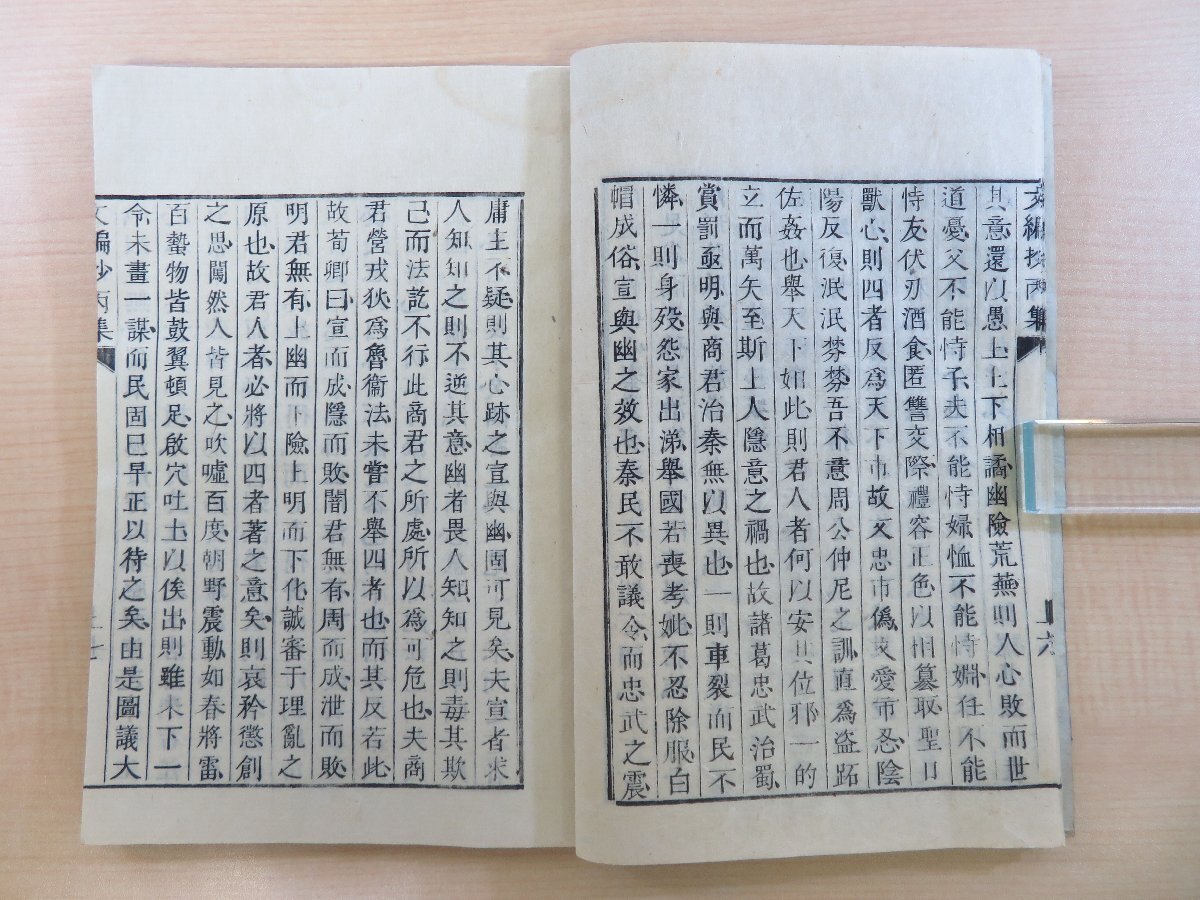 其意還以愚上上下相譎幽險荒蕪則人心敗而世
道憂父不能恃子夫不能恃婦恤不能恃嫻任不能
恃友伏刃酒食匿讐交際禮容正色以相篡取聖口
獸心則四者反爲天下市故文忠市僞文愛市忍陰
陽反復泯泯棼棼吾不意周公仲尼之訓直爲盜跖
佐姦也舉天下如此則君人者何以安其位邪一的
立而萬矢至斯上人隱意之禍也故諸葛忠武治蜀
賞罰亟明與商君治秦無以異也一則車裂而民不
憐一則身殁怨家出涕舉國若喪考妣不忍除服白
帽成俗宣與幽之效也秦民不敢議令而忠武之震
庸主不疑則其心跡之宣與幽固可見矣夫宣者求
人知知之則不逆其意幽者畏人知知之則毒其欺
己而法訖不行此商君之所處所以爲可危也夫商
君營戎狄爲魯衞法未嘗不舉四者也而其反若此
故荀卿曰宣而成隱而敗闇君無有周而成泄而敗
明君無有上幽而下險上明而下化誠審于理亂之
原也故君人者必將以四者著之意矣則哀矜懲創
之思闖然人皆見之吹噓百度朝野震動如春將雷
百蟄物皆鼓翼頓足啟穴吐土以俟出則雖未下一
令未畫一謀而民固已早正以待之矣由是圖議大
文編抄丙集